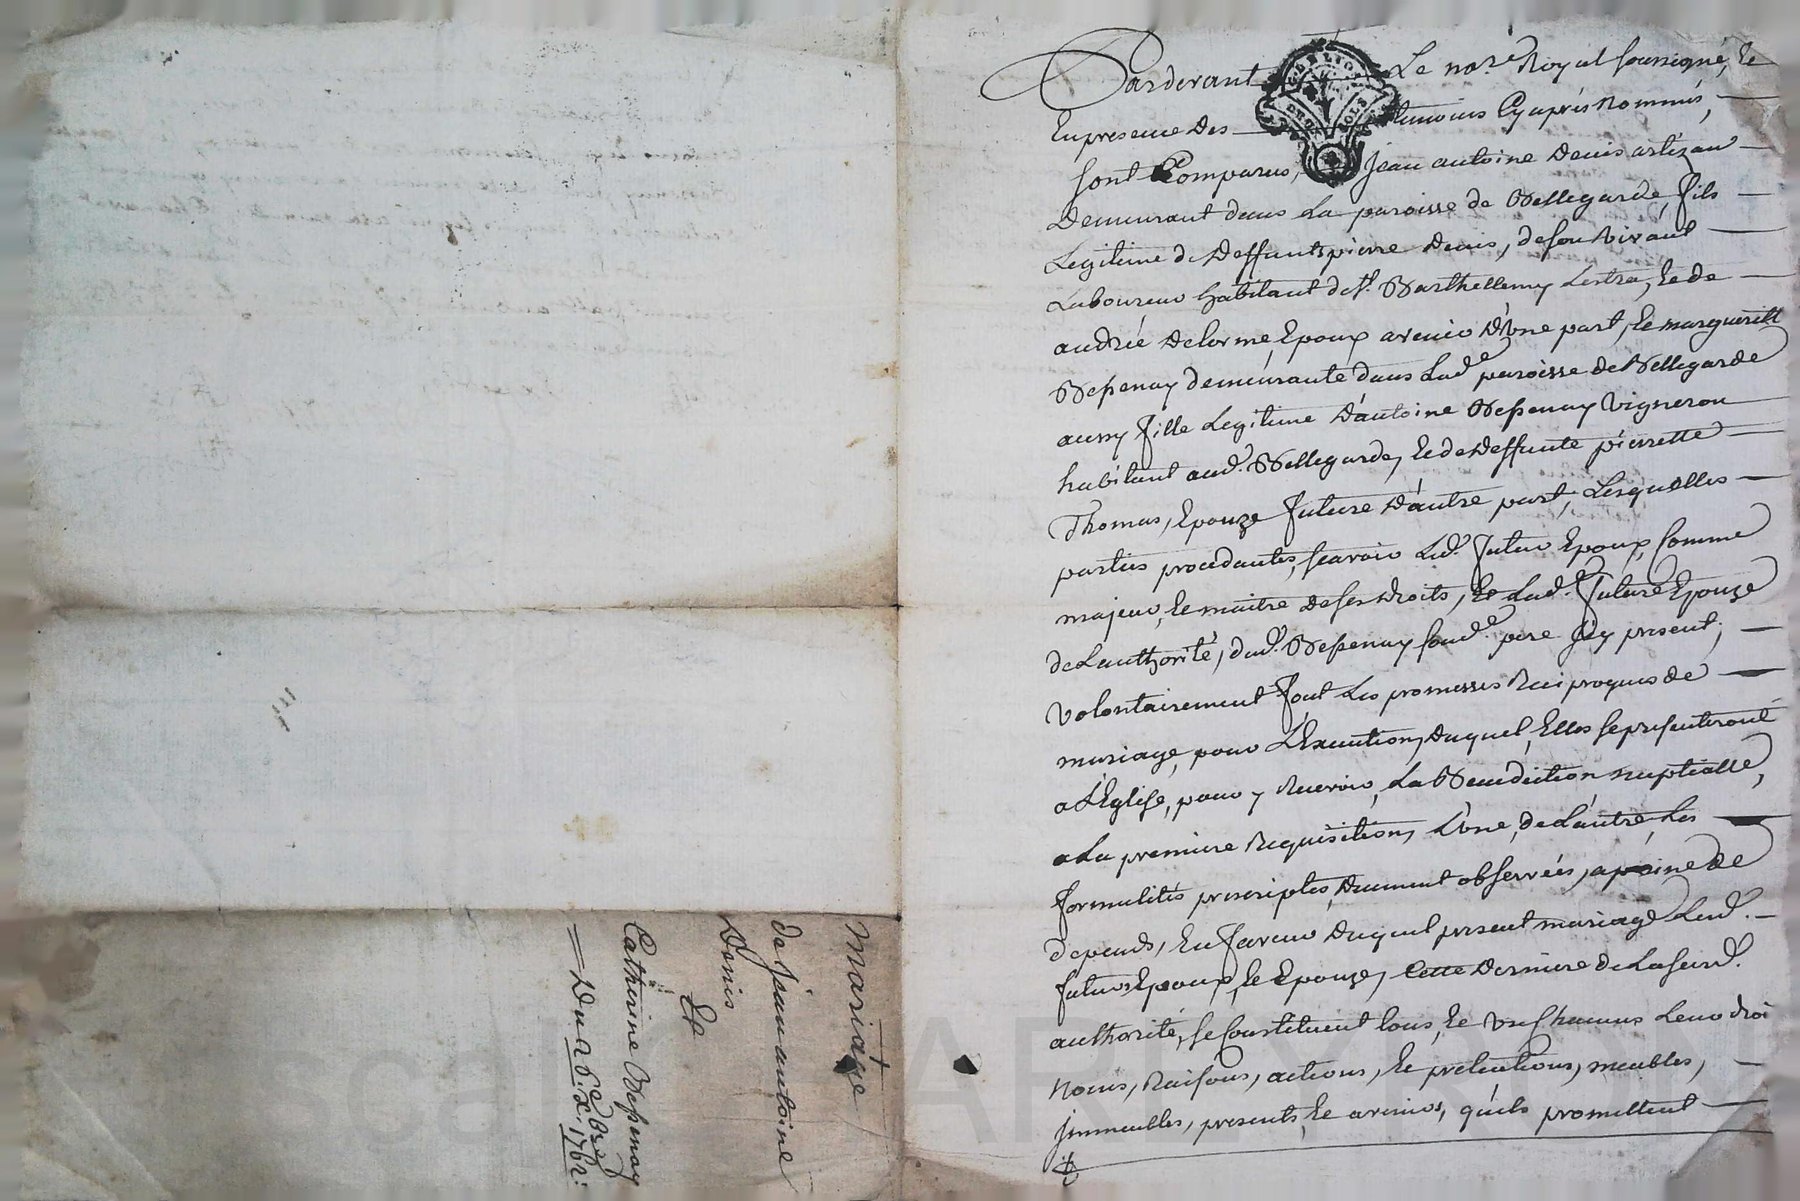 Pardevant Le no.re Royal soussigné, Et
En presence des temoins Cy aprés Nommés,
Sont Comparus, Jean antoine Denis artizan
Demeurant dans La paroisse de Bellegarde, fils
Legitime de Deffunts pierre Denis, de son vivant
Laboureur habitant de St. Barthellemy Lestra, Et de
andrée Delorme, Epoux avenir D'Une part, Et marguerite
Bessenay demeurante dans Lad.e paroisse de Bellegarde
aussy fille Legitime D'antoine Bessenay Vigneron
habitant aud. Bellegarde, Et de Deffunte pierrette
Thomas, Epouze future D'autre part, Lesquelles
parties procedantes, scavoir Led. futur Epoux, Comme
majeur, Et maitre de ses droits, Et Lad.e future Epouze
de L'authorité, dud. Bessenay sond. pere Icy present,
volontairement font Les promesses Reciproques de
mariage, pour L'Execution Duquel, Elles se presenteront
a L'Eglise, pour y Recevoir, La Benediction nuptialle,
a La premiere Requisition, L'une, de L'autre, Les
formalités prescriptes, Duement observées, a peine de
depends, En faveur Duquel present mariage Lesd.
futurs Epoux, Et Epouze, Cette Derniere de La susd.
authorité, se Constituent tous, Et Un Chacuns Leurs droi
Noms, Raisons, actions, Et pretentions, meubles,
Immeubles, presents, Et avenirs, qu'ils promettent
Mariage
de Jean antoine
Denis
Et
Catherine Bessenay
Du 26. X.bre 1762.